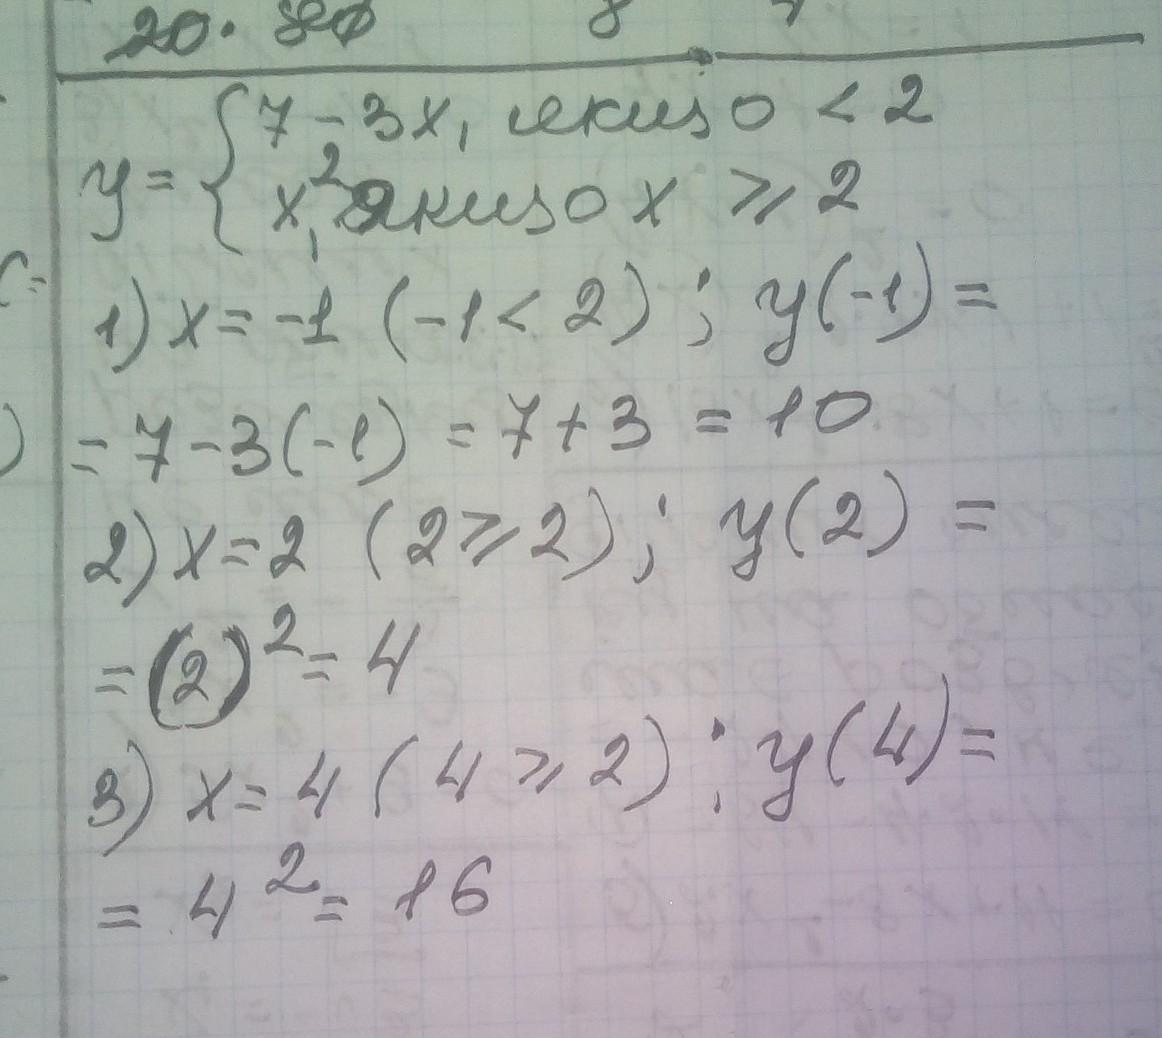 20.
8
y = { 7 - 3x, якщо < 2
x², якщо x ⩾ 2
1) x = -1 (-1 < 2) ; y(-1) =
= 7 - 3(-1) = 7 + 3 = 10
2) x = 2 (2 ⩾ 2) ; y(2) =
= (2)² = 4
3) x = 4 (4 ⩾ 2) ; y(4) =
= 4² = 16